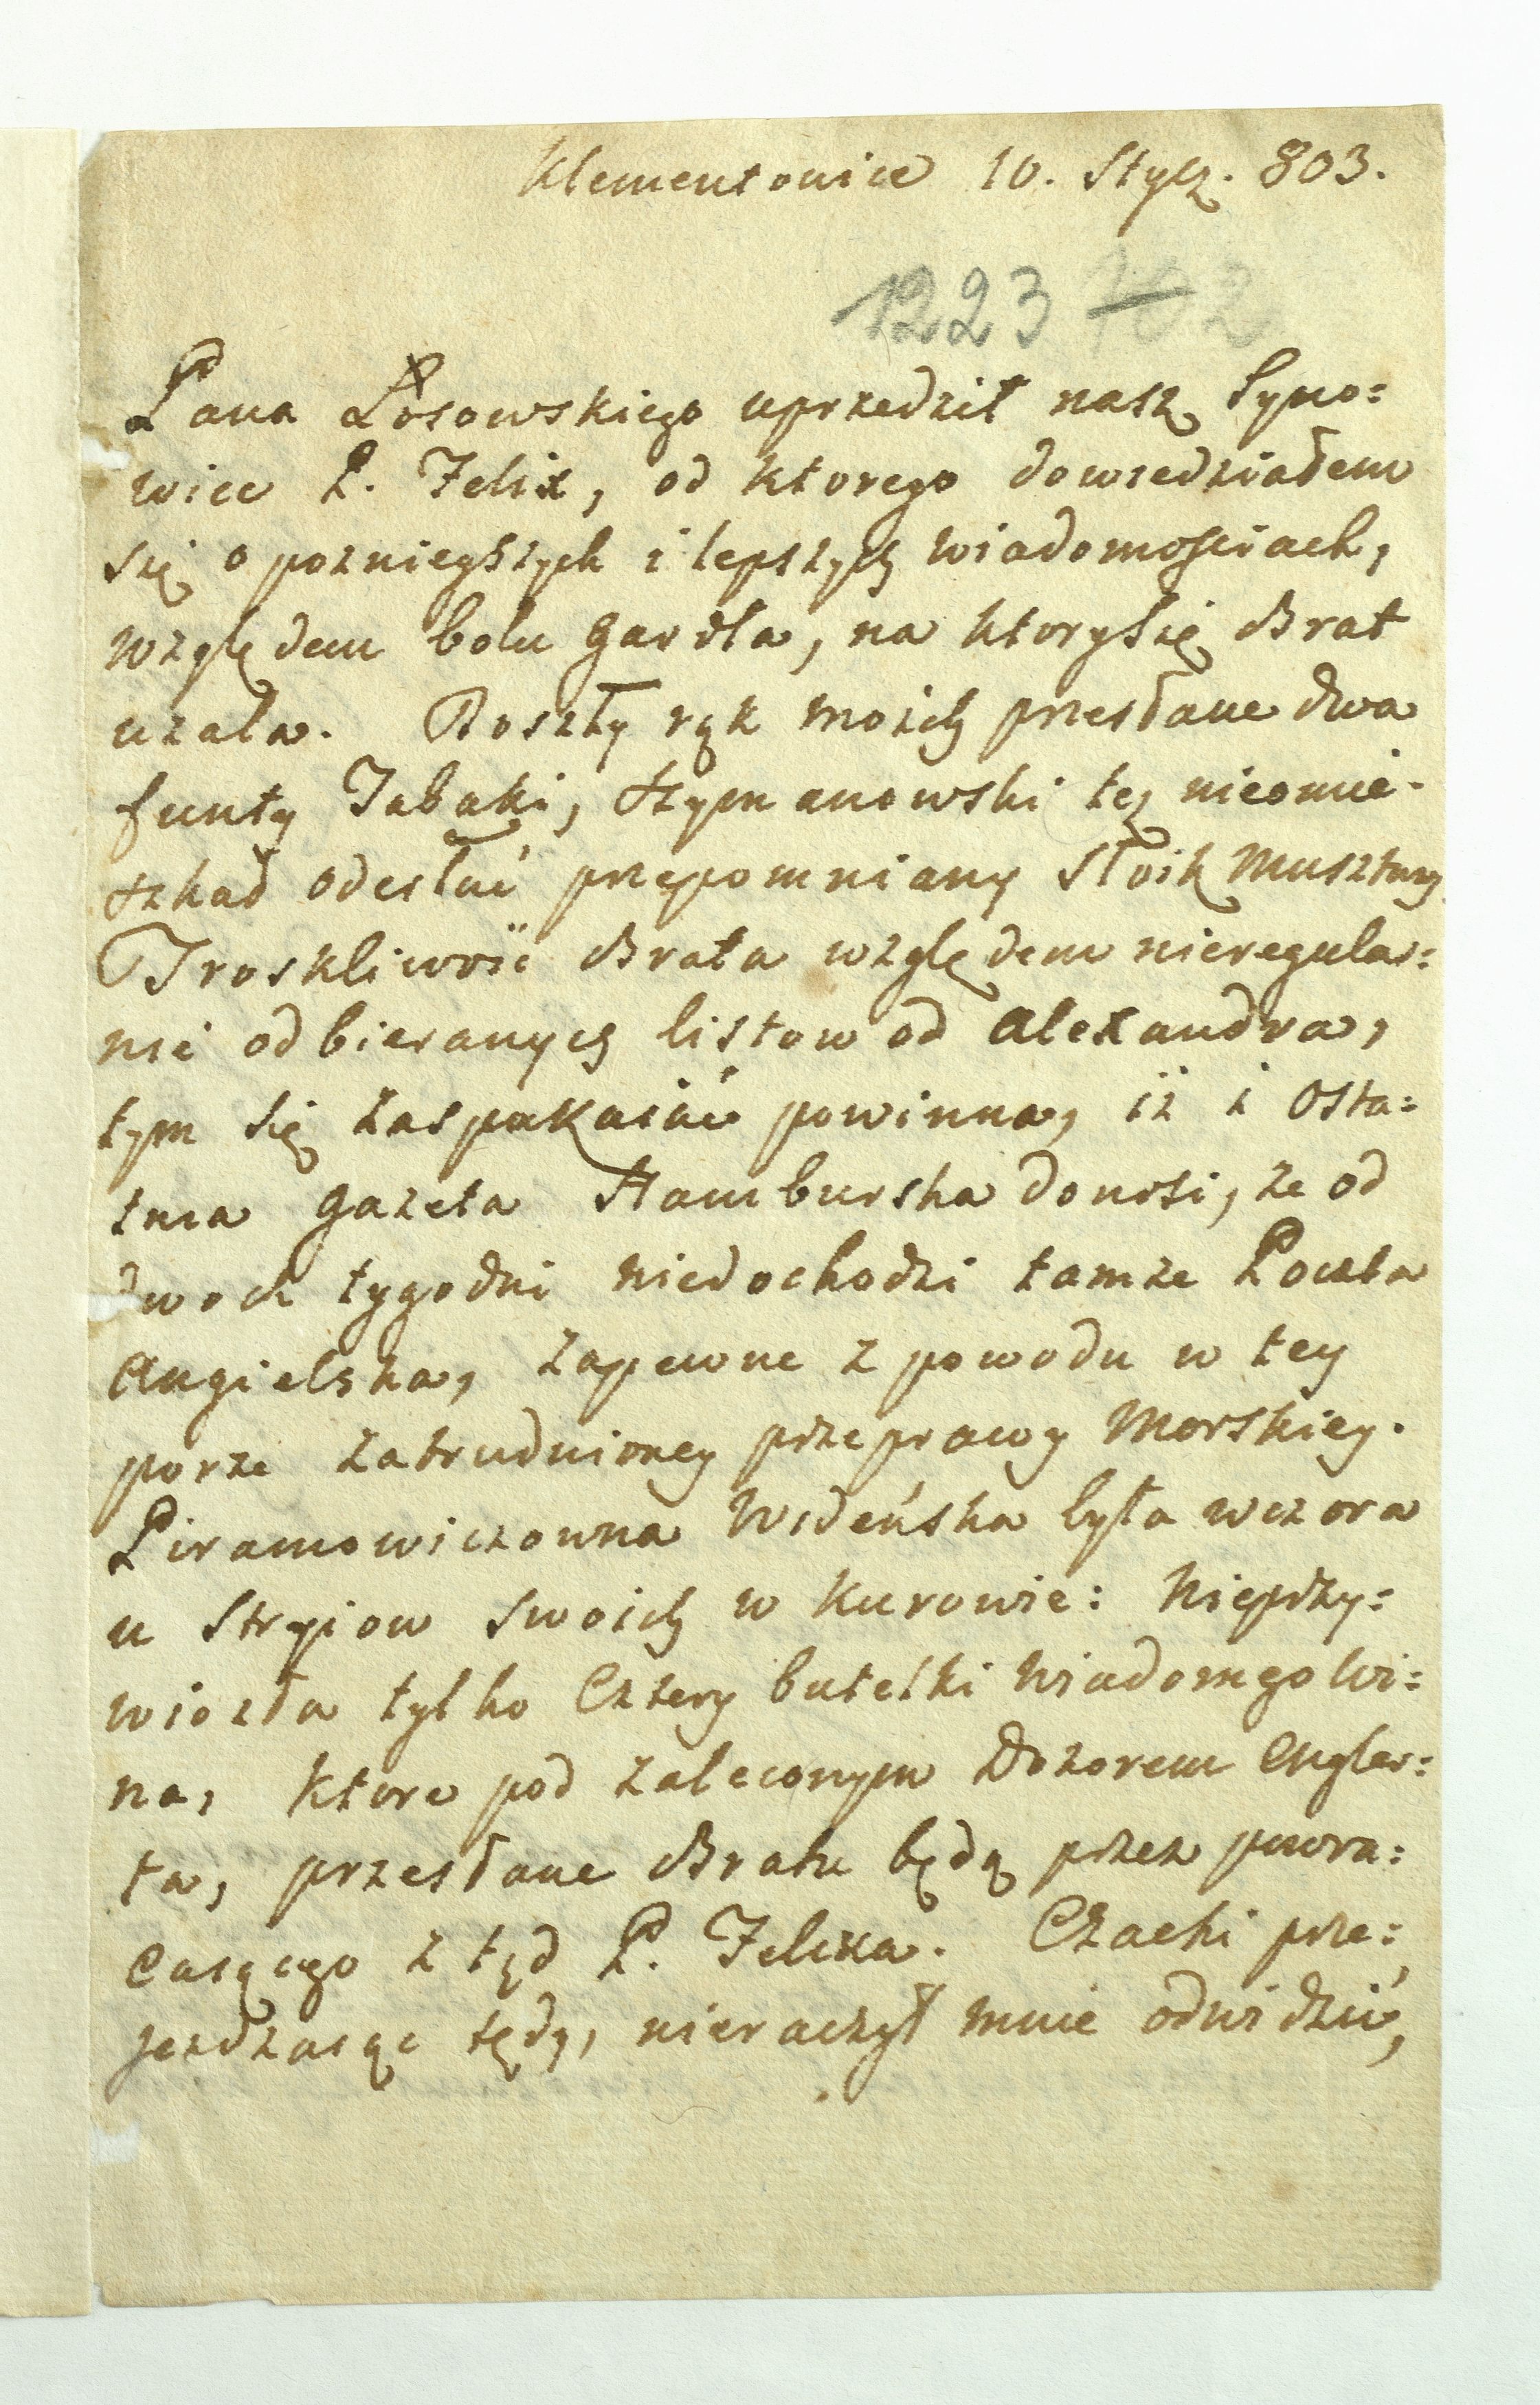 Klementowice 10. Stycz. 803.
1223 102
Pana Łosowskiego uprzedził nasz Syno=
wiec P. Felix, od ktorego dowiedziałem
się o poznieyszych i lepszych wiadomosciach,
względem bolu gardła, na ktory się Brat
uzala. Doszły rąk moich przesłane dwa
funty Tabaki, Szymanowski tez nieomie=
szkał odesłać przepomniany Słoik Musztardy
Troskliwość Brata względem nieregular=
nie odbieranych listow od Alexandra,
tym się zaspakaiać powinna, iż i osta=
tnia gazeta Hamburska donosi, ze od
dwoch tygodni niedochodzi tamze Poczta
Angielska, zapewne z powodu w tey
porze zatrudnioney przeprawy Morskiey.
Piramowiczowna Wideńska była wczora
u Stryiow Swoich w Kurowie: Nieprzy=
wiozła tylko Cztery butelki wiadomego Wi=
na, ktore pod zaleconym Dozorem Engler=
ta, przesłane Bratu będą przez powra=
caiącego z tąd P. Felixa. Czacki prze=
jezdzaiąc tędy, nieraczył mnie odwidzić,